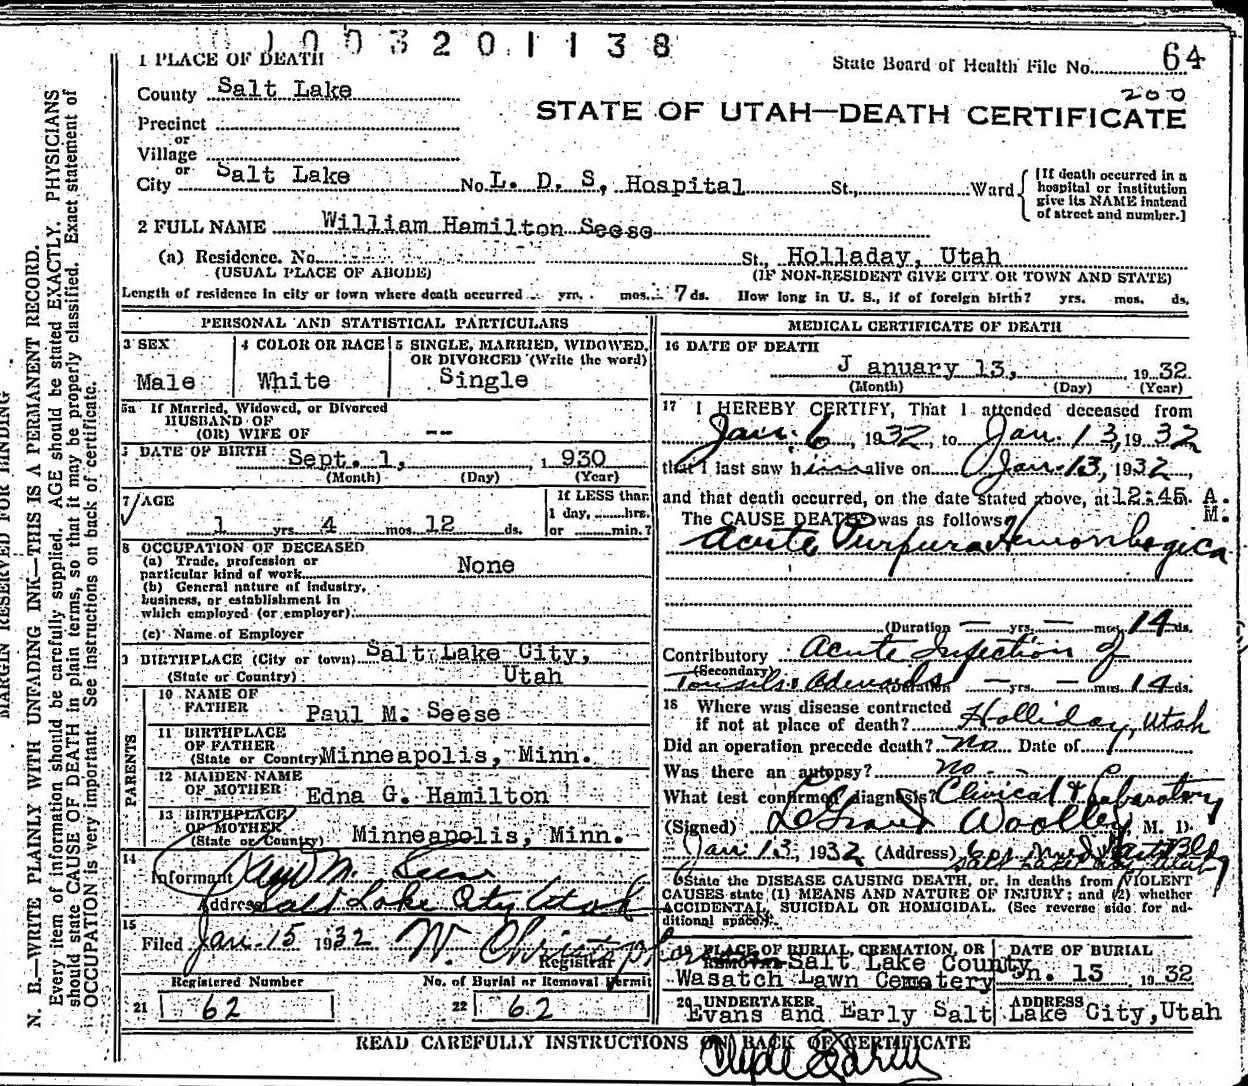 1003201138
1 PLACE OF DEATH
State Board of Health File No. 64
County Salt Lake
200
STATE OF UTAH—DEATH CERTIFICATE
Precinct
or
Village
or
City Salt Lake No. L. D. S, Hospital St., Ward
[If death occurred in a hospital or institution give its NAME instead of street and number.]
2 FULL NAME William Hamilton Seese
(a) Residence. No. St., Holladay, Utah
(USUAL PLACE OF ABODE) (IF NON-RESIDENT GIVE CITY OR TOWN AND STATE)
Length of residence in city or town where death occurred yrs. mos. 7 ds. How long in U. S., if of foreign birth? yrs. mos. ds.
PERSONAL AND STATISTICAL PARTICULARS
3 SEX
Male
4 COLOR OR RACE
White
5 SINGLE, MARRIED, WIDOWED,
OR DIVORCED (Write the word)
Single
5a If Married, Widowed, or Divorced
HUSBAND OF
(OR) WIFE OF --
DATE OF BIRTH Sept. 1, 1930
(Month) (Day) (Year)
7 AGE
1 yrs 4 mos. 12 ds.
If LESS than
1 day, hrs.
or min.?
8 OCCUPATION OF DECEASED
(a) Trade, profession or
particular kind of work None
(b) General nature of industry,
business, or establishment in
which employed (or employer)
(c) Name of Employer
BIRTHPLACE (City or town) Salt Lake City,
(State or Country) Utah
PARENTS
10 NAME OF
FATHER Paul M. Seese
11 BIRTHPLACE
OF FATHER
(State or Country) Minneapolis, Minn.
12 MAIDEN NAME
OF MOTHER Edna G. Hamilton
13 BIRTHPLACE
OF MOTHER
(State or Country) Minneapolis, Minn.
14
Informant Paul M. Seese
Address Salt Lake City Utah
15
Filed Jan. 15 1932 W. Christopherson
Registrar
Registered Number No. of Burial or Removal Permit
21 62 22 62
MEDICAL CERTIFICATE OF DEATH
16 DATE OF DEATH
January 13, 1932
(Month) (Day) (Year)
17 I HEREBY CERTIFY, That I attended deceased from
Jan. 6, 1932, to Jan. 13, 1932
that I last saw him alive on Jan. 13, 1932,
and that death occurred, on the date stated above, at 12:45 A. M.
The CAUSE DEATH was as follows
Acute Purpura Hemorrhagica
(Duration — yrs. — mos. 14 ds.
Contributory Acute Infection of
(Secondary)
Tonsils & (Duration — yrs. — mos. 14 ds.
18 Where was disease contracted
if not at place of death? Holliday, Utah
Did an operation precede death? No Date of
Was there an autopsy? no
What test confirmed diagnosis? Clinical & Laboratory
(Signed) LeGrand Woolley, M. D.
Jan. 13, 1932 (Address)
Salt Lake City Utah
State the DISEASE CAUSING DEATH, or, in deaths from VIOLENT
CAUSES state (1) MEANS AND NATURE OF INJURY; and (2) whether
ACCIDENTAL, SUICIDAL OR HOMICIDAL. (See reverse side for ad-
ditional space).
19 PLACE OF BURIAL, CREMATION, OR
REMOVAL Salt Lake County
Wasatch Lawn Cemetery
DATE OF BURIAL
Jn. 15 1932
20 UNDERTAKER
Evans and Early Salt
ADDRESS
Lake City, Utah
READ CAREFULLY INSTRUCTIONS ON BACK OF CERTIFICATE
MARGIN RESERVED FOR BINDING
N. B.—WRITE PLAINLY WITH UNFADING INK—THIS IS A PERMANENT RECORD.
Every item of information should be carefully supplied. AGE should be stated EXACTLY. PHYSICIANS
should state CAUSE OF DEATH in plain terms, so that it may be properly classified. Exact statement of
OCCUPATION is very important. See instructions on back of certificate.